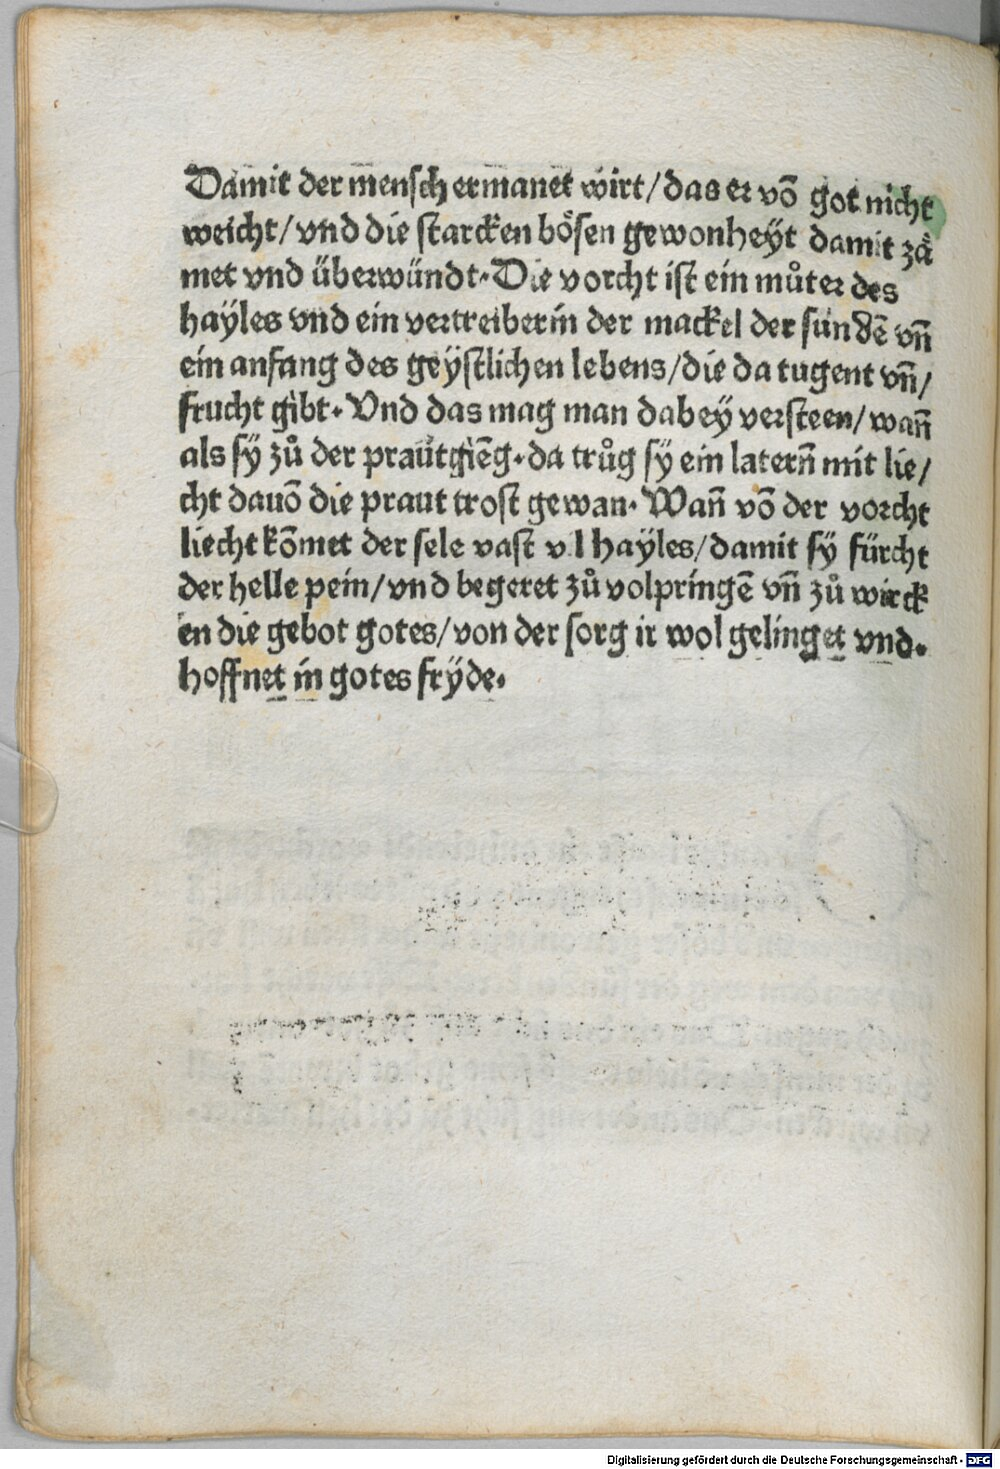 Damit der mensch ermanet wirt/das er võ got nicht
weicht/vnd die starcken bösen gewonheÿt damit zä
met vnd überwündt·Die vorcht ist ein můter des
haÿles vnd ein vertreiberin der mackel der sündẽ vñ
ein anfang des geÿstlichen lebens/die da tugent vñ/
frucht gibt·Vnd das mag man dabeÿ versteen/wañ
als sÿ zů der praütgiẽg·da trůg sÿ ein laterñ mit lie/
cht dauõ die praut trost gewan·Wañ võ der vorcht
liecht kõmet der sele vast v l haÿles/damit sÿ fürcht
der helle pein/vnd begeret zů volpringẽ vñ zů wirck
en die gebot gotes/von der sorg ir wol gelinget vnd·
hoffnet in gotes frÿde·
Digitalisierung gefördert durch die Deutsche Forschungsgemeinschaft - DFG